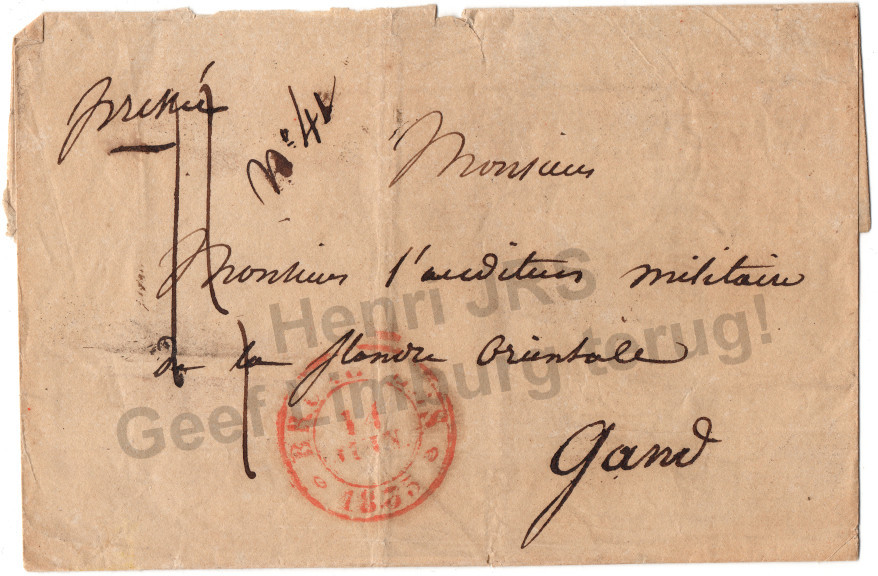 pressée
N° 41
Monsieur
Monsieur l'auditeur militaire
de la flandre Orientale
Gand
14
JUIN
1835
Henri JRS
Geef Limburg terug!